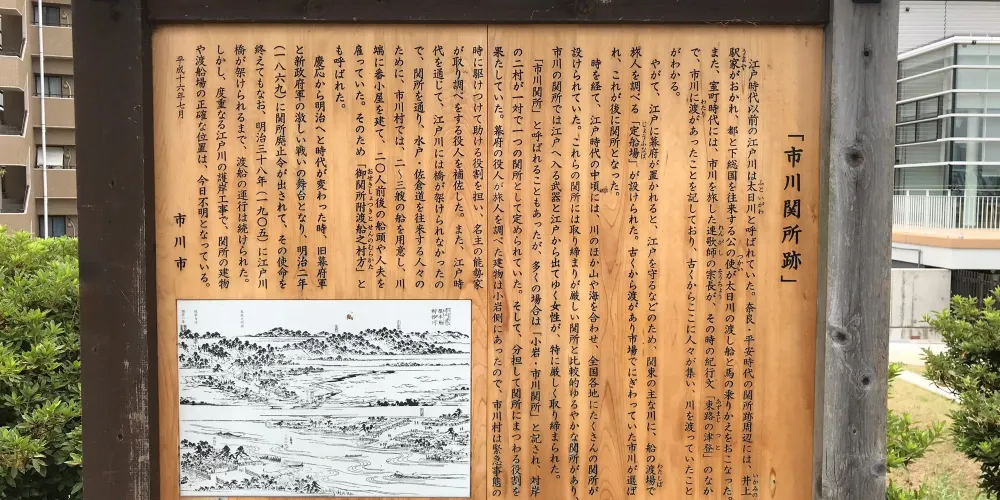 「市川関所跡」
江戸時代以前の江戸川は太日川と呼ばれていた。奈良・平安時代の関所跡周辺には、井上
駅家がおかれ、都と下総国を往来する公の使が太日川の渡し船と馬の乗りかえをおこなった。
また、室町時代には、市川を旅した連歌師の宗長が、その時の紀行文『東路の津登』のなか
で、市川に渡があったことを記しており、古くからここに人々が集い、川を渡っていたこと
がわかる。
やがて、江戸に幕府が置かれると、江戸を守るなどのため、関東の主な川に、船の渡場で
旅人を調べる「定船場」が設けられた。古くから渡があり市場でにぎわっていた市川が選ば
れ、これが後に関所となった。
時を経て、江戸時代の中頃には、川のほか山や海を合わせ、全国各地にたくさんの関所が
設けられていた。これらの関所には取り締まりが厳しい関所と比較的ゆるやかな関所があり、
市川の関所では江戸へ入る武器と江戸から出てゆく女性が、特に厳しく取り締まられた。
「市川関所」と呼ばれることもあったが、多くの場合は「小岩・市川関所」と記され、対岸
の二村が一対で一つの関所として定められていた。そして、分担して関所にまつわる役割を
果たしていた。幕府の役人が旅人を調べた建物は小岩側にあったので、市川村は緊急事態の
時に駆けつけて助ける役割を担い、名主の能勢家
が取り調べをする役人を補佐した。また、江戸時
代を通じて、江戸川には橋が架けられなかったの
で、関所を通り、水戸・佐倉道を往来する人々の
ために、市川村では、二〜三艘の船を用意し、川
端に番小屋を建て、二〇人前後の船頭や人夫を
雇っていた。そのため「御関所附渡船之村方」と
も呼ばれた。
慶応から明治へと時代が変わった時、旧幕府軍
と新政府軍の激しい戦いの舞台となり、明治二年
（一八六九）に関所廃止令が出されて、その使命を
終えてもなお、明治三十八年（一九〇五）に江戸川
橋が架けられるまで、渡船の運行は続けられた。
しかし、度重なる江戸川の護岸工事で、関所の建物
や渡船場の正確な位置は、今日不明となっている。
平成十六年七月
市川市